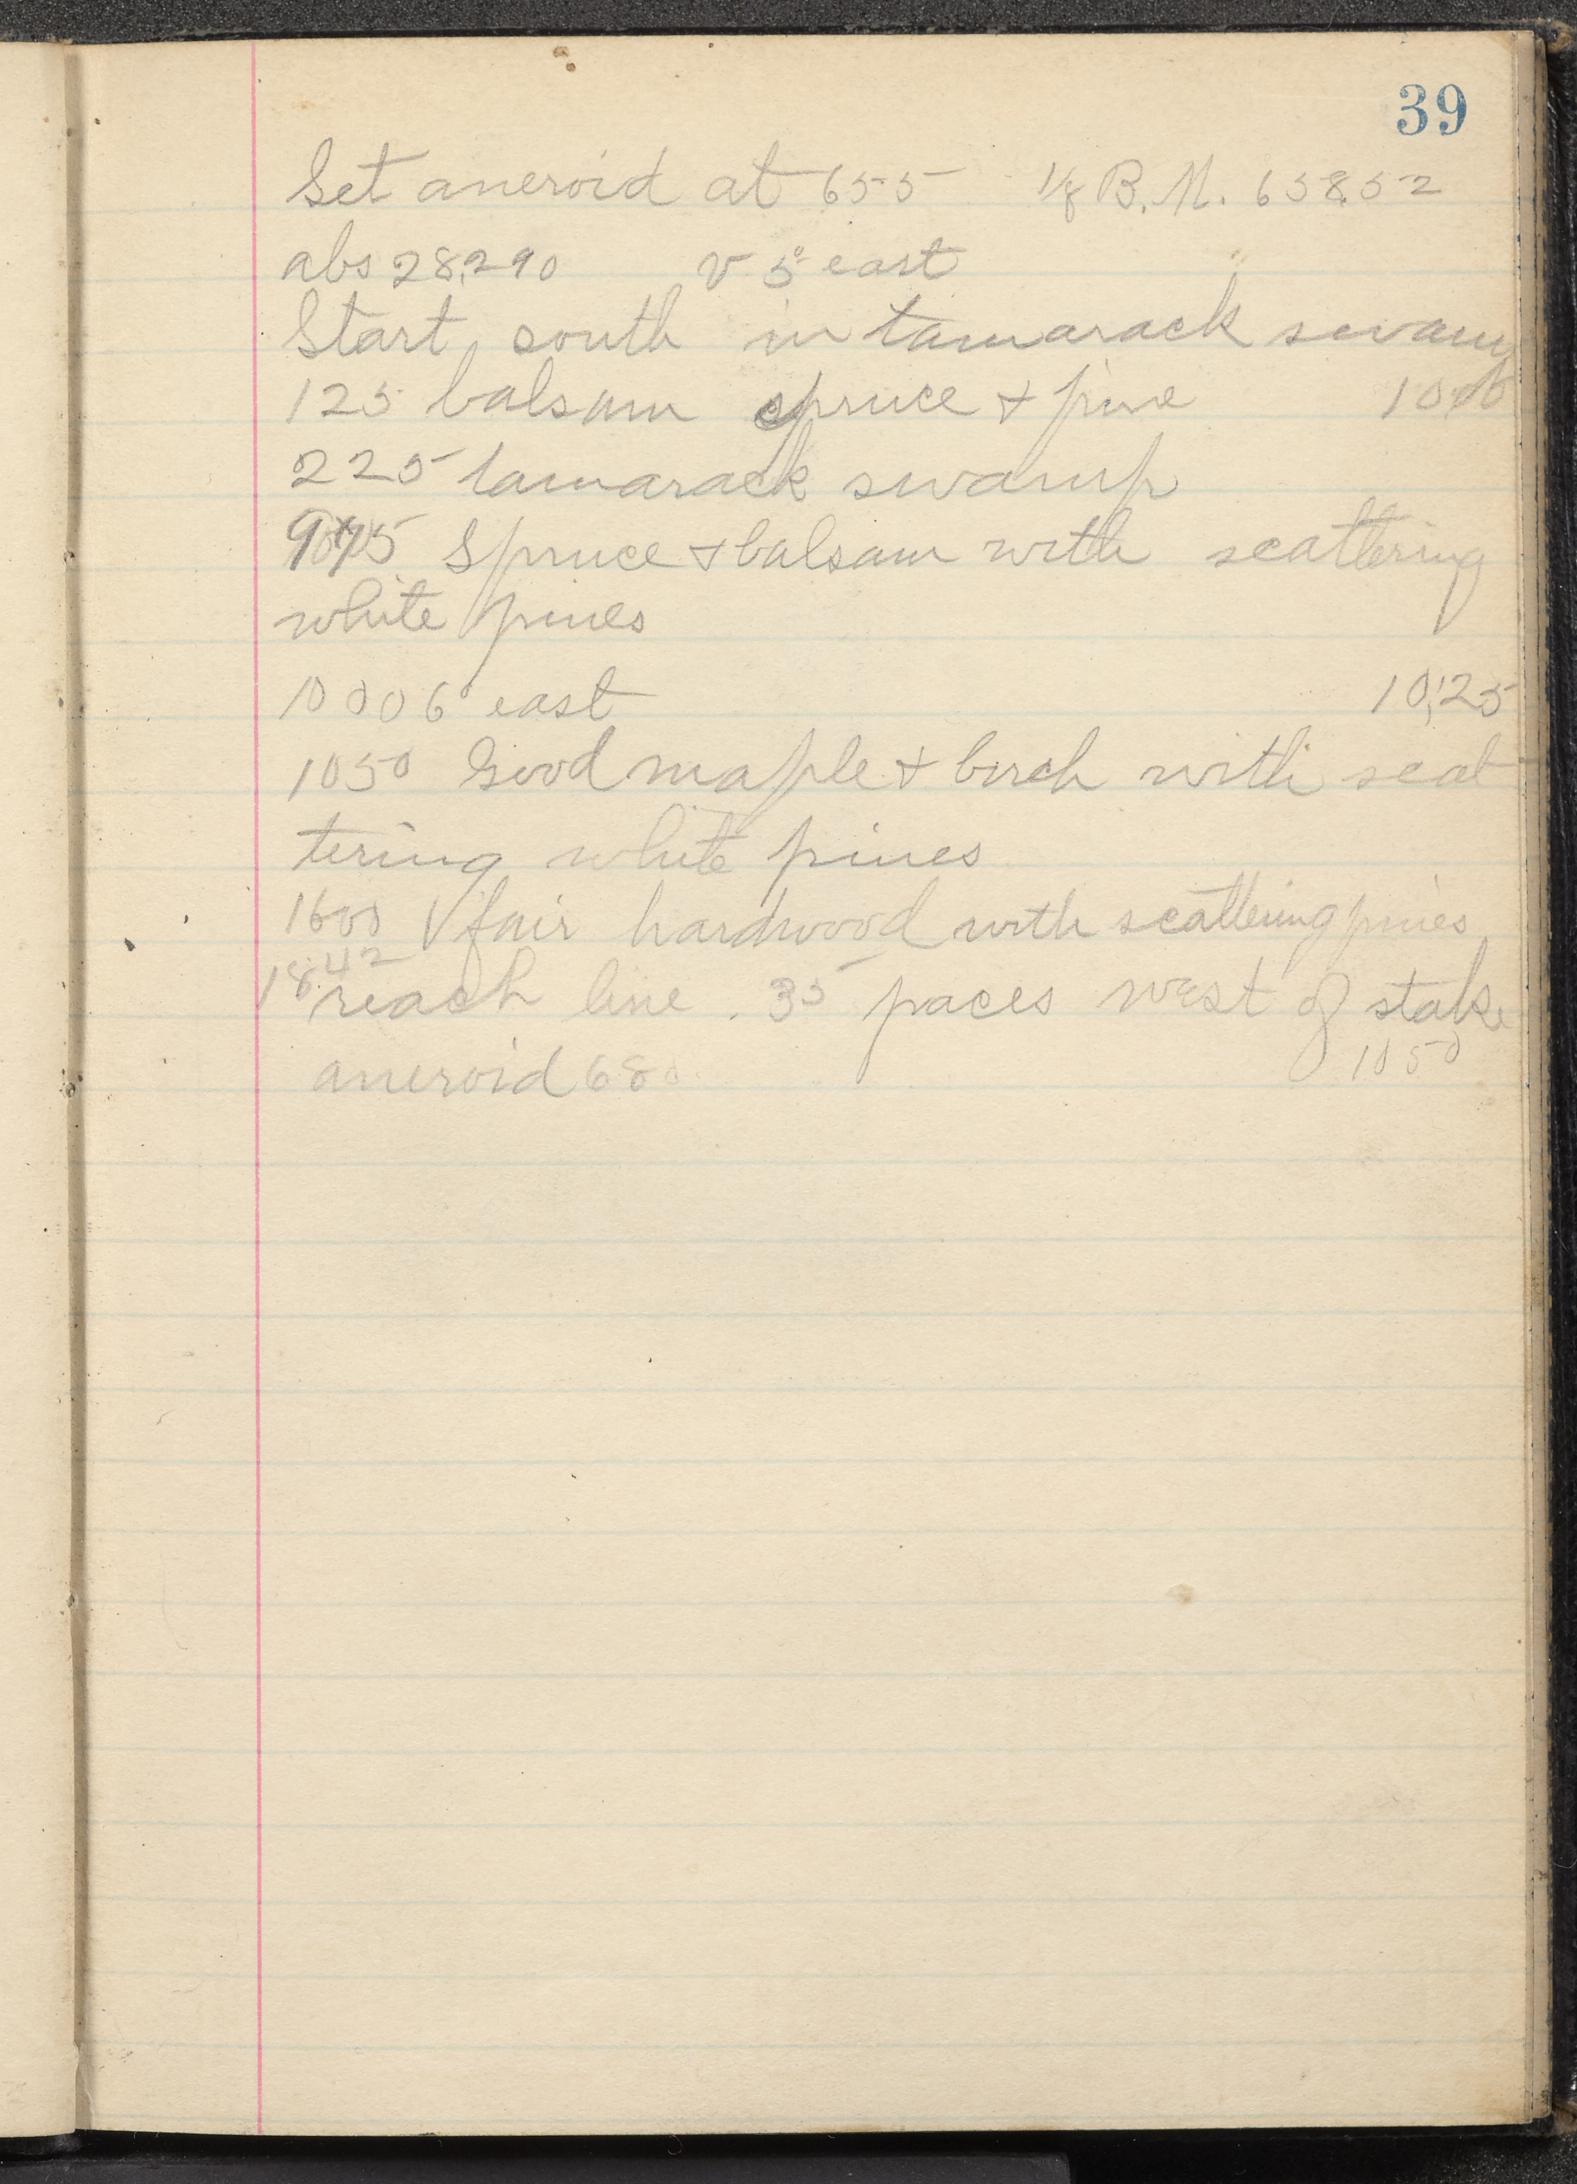 39
Set aneroid at 655 1/8 B.M. 658.52
abs 28.290 v 5° east
Start south in tamarack swamp
125 balsam spruce & pine
225 tamarack swamp
Spruce & balsam with scattering
white pines
1000 6° east 10,25
1050 Good maple & birch with scat
tering white pines
1600 fair hardwood with scattering pines
1842
reach line. 35 paces west of stake
1050
aneroid 680